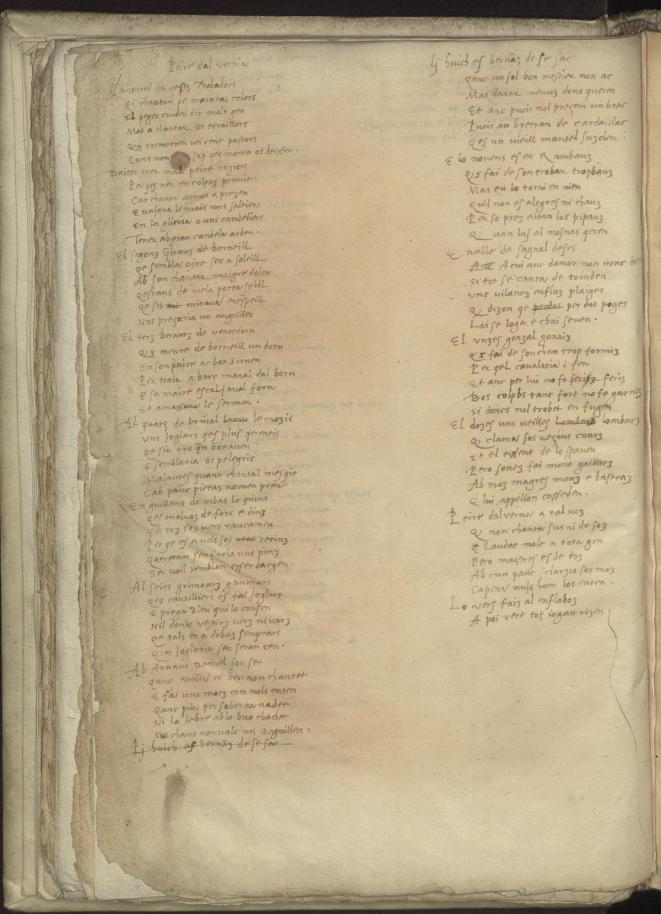 Peire dal vernia
Chantarai da qestz Trobadors
Qi chanton de maintas colors
El peger cuida dir molt gen
Mas a chantar lor er aillors
Qen trametren vei cent pastors
Cuns non sap qes monta os deissen.
Daisso mer mal peire rogiers
Per qes nen colpatz premiers
Car chanta damor a prezen
E valgra le mais uns saltiers
En la glieisa o uns candeliers
Tener ab gran candela arden.
El segonz Giraus de borneill
Qe sembla oire sec a soleill
Ab son chantar maigre dolen
Qes cans de viela porta seill
Qe sis mirava en espeill
Nos prezaria un anguillen
El terz bernarz de ventedorn
Qes menre de borneill un dorn
En son paire ac bon sirven
Per traire ab arc manal dal born
E sa maire escalfava forn
Et amassava le serman.
El quarz de brival le mozis
Uns Joglars qes plus qerentis
Qe sia tro qen bonaven
E semblaria os pelegris
Malautes quant chantal mesqis
Cab pauc pietaz nomen pren
En guillems de ribas lo quins
Qes malvaz de fors e dinz
Dei toz sos vers raucamen
Per qe es avols sos retinz
Qatretan sen faria uns pinz
Sei voil semblon esser dargen.
Al seies grimoarz gaumars
Qes cavaillierz es fai joglars
E prega Dieu qui lo consen
Nil dona vestirz verz ni varz
Qa tals er adobaz semprars
Qen joglarit sen seran cen.
Ab Arnaut Daniel son set
Qanc nuillz er ben non chantet
E fai uns motz com nols enten
Qanc pius per soberna nadet
Ni la lebre ab lo buo chachet
Sos chans non valc un anguillen.
Lj huich es bernatz de se sac
Lj huich es bernatz de se sac
Qanc un sol bon mestier non ac
Mas danar menuz dons queren
Et anc puois nol prezem un brac
Puois an bretran de cardaillac
Qes un vieill mantel suzolen.
E lo novens es en Rambauz
Qis fai de son trobar trop bauz
Mas eu lo torn en nien
Quil non es alegres ni chauz
Per so prez aitan los pipauz
Qi van las almosnas qeren
E nalbe de sagnal deses
A cui anc damor non venc
Si tot se canta de coinden
Uns vilanez enflaz plaiges
Qi dizon qe per dos poges
Lai se loga e chai se ven.
El unzes gonzal gonaiz
Qis fai de son chan trop formiz
Per qel cavalaria i fen
Et anc per lui no fo feriz
Bos colpbs tant fort no fo garniz
Si doncs nol trobet en fugen
El dozes uns veilles lombarz
Qi clama sos vezins coarz
Et el eissent de lo spaven
Pero sonez fai mout gaillarz
Ab moz magres monz e bastraz
E lui appellon cosseden.
Peire dalvernes a tal voz
Qi non chanta sus ni de soz
E Laudas molt a tota gen
Pero maistres es de toz
Ab cun pauc sclarzis sos moz
Capena nuls hom los enten.
Lo vers faiz al enflaboz
A poi vert toz iogan rizen